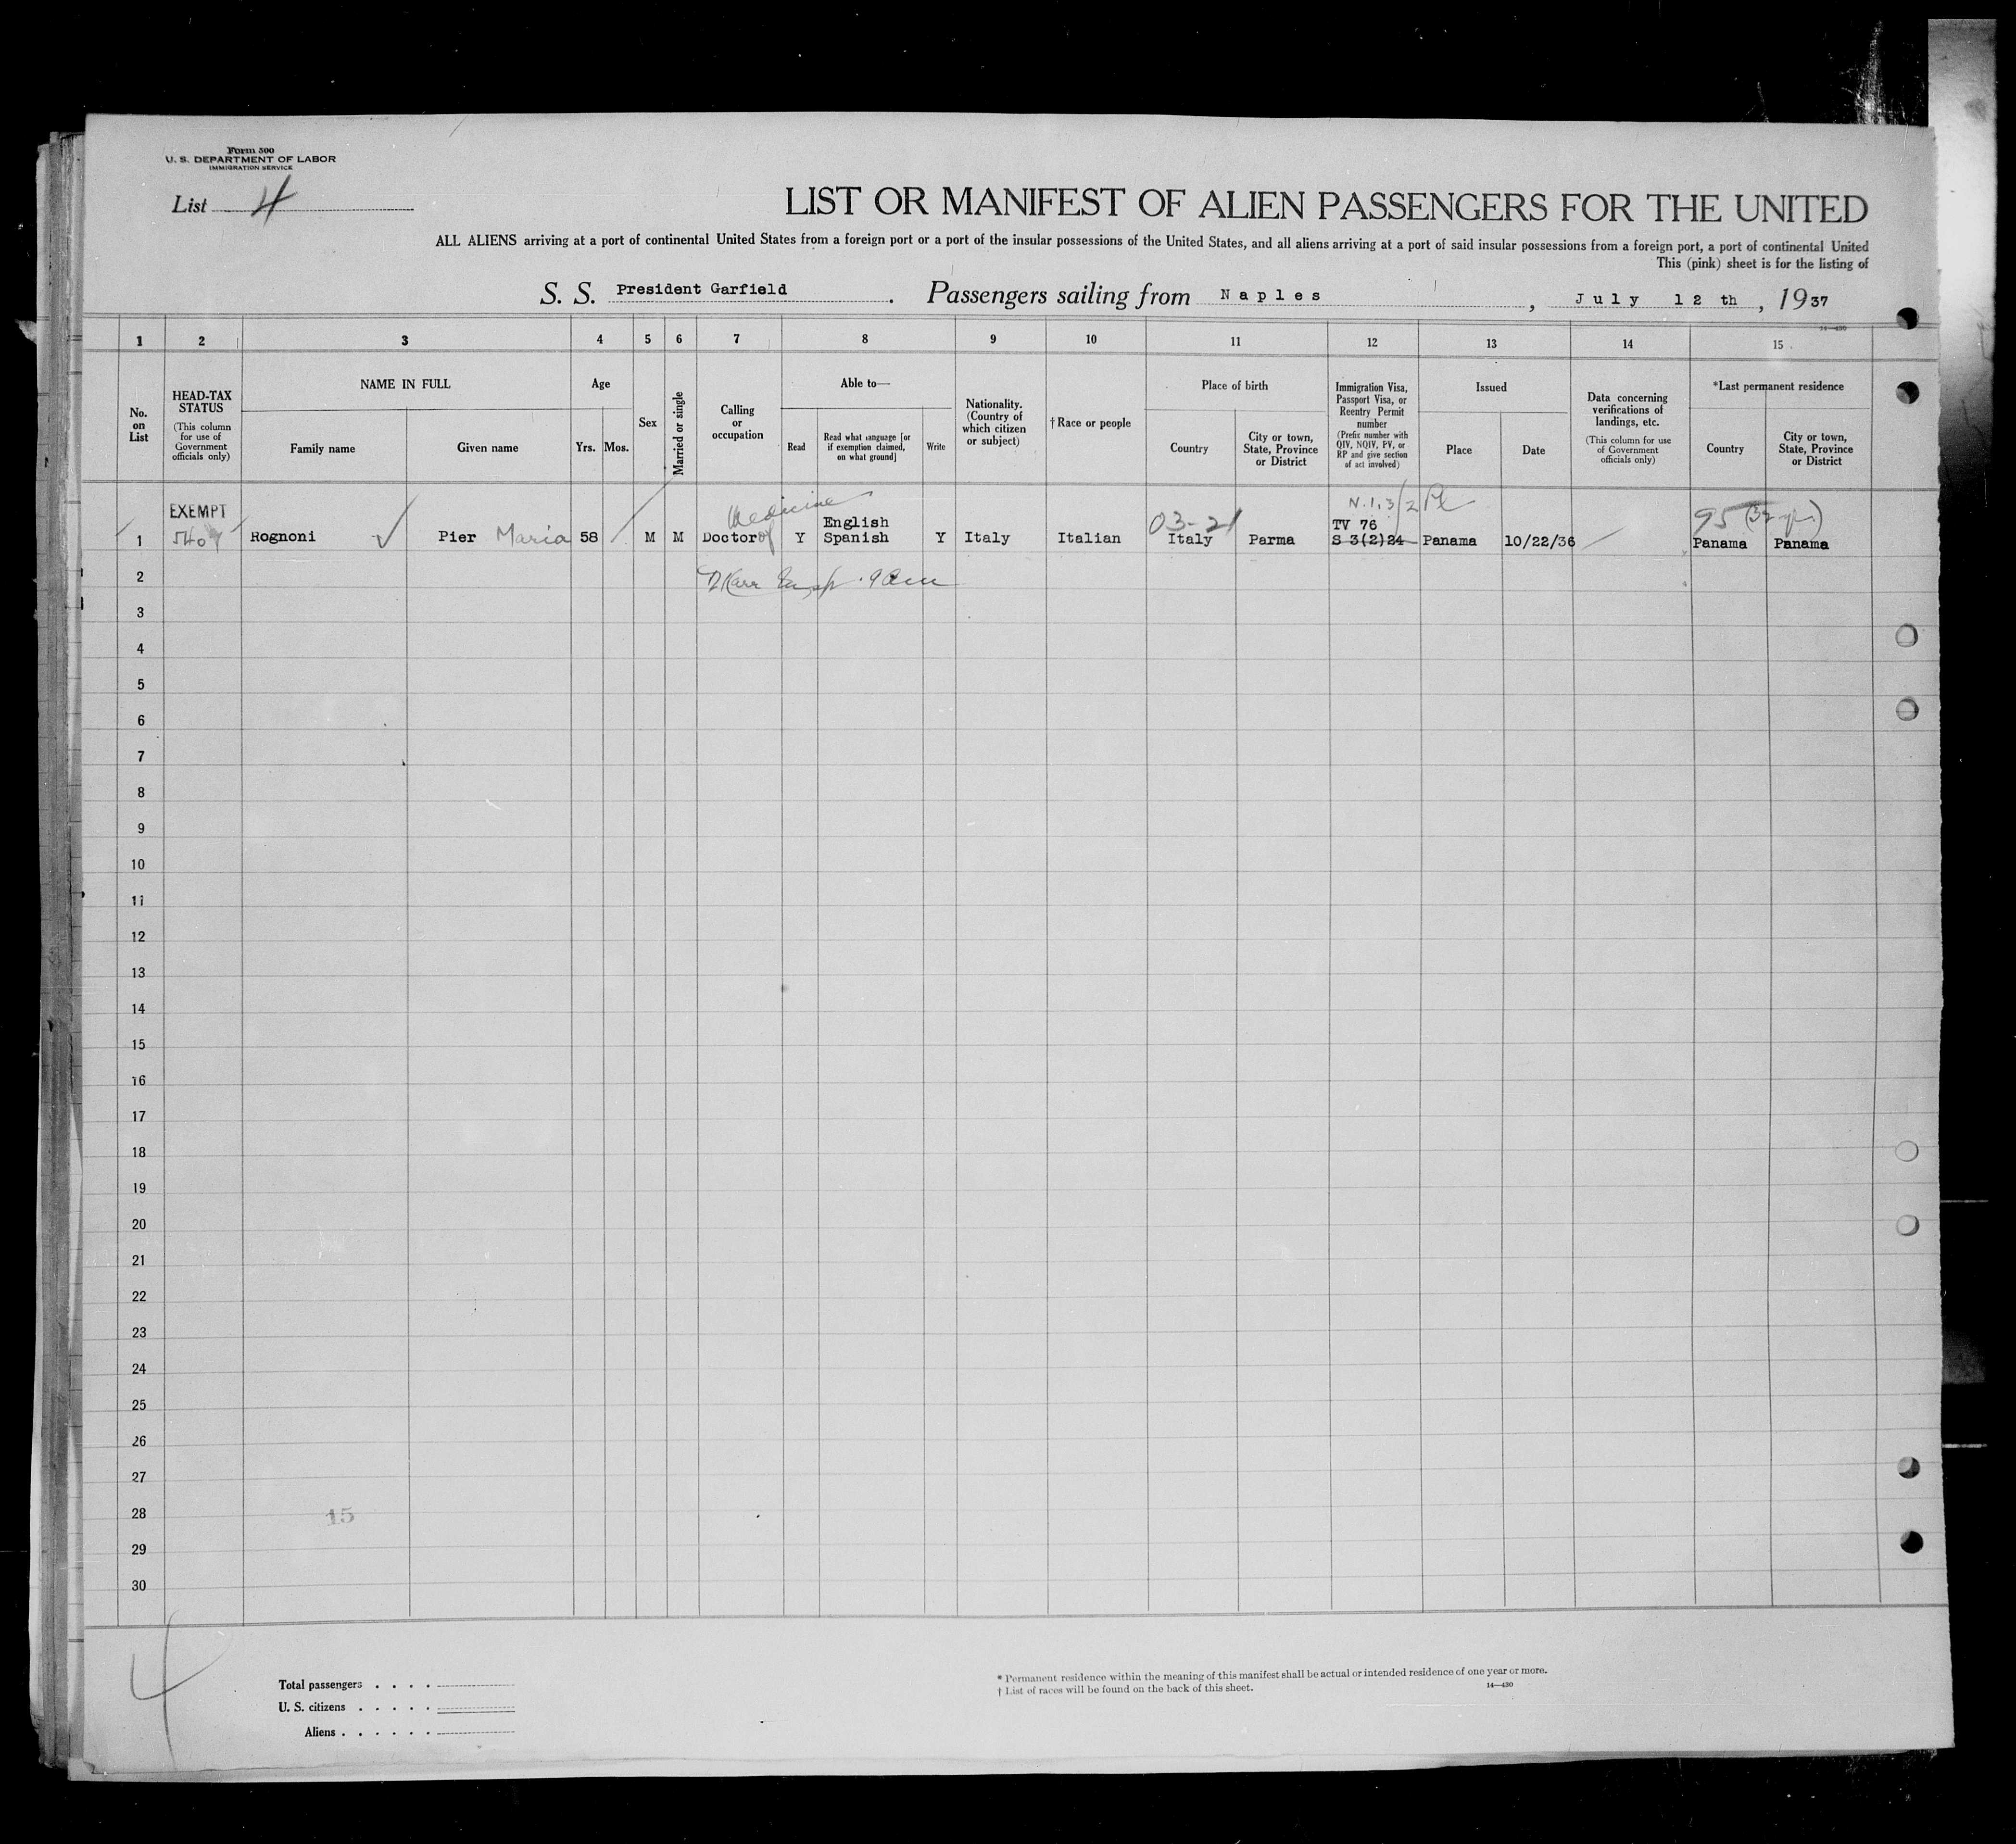 Form 500
U. S. DEPARTMENT OF LABOR
IMMIGRATION SERVICE
List 4
LIST OR MANIFEST OF ALIEN PASSENGERS FOR THE UNITED
ALL ALIENS arriving at a port of continental United States from a foreign port or a port of the insular possessions of the United States, and all aliens arriving at a port of said insular possessions from a foreign port, a port of continental United
This (pink) sheet is for the listing of
S. S. President Garfield . Passengers sailing from Naples , July 12 th , 1937
14—430
1 2 3 4 5 6 7 8 9 10 11 12 13 14 15
No. on List
HEAD-TAX STATUS
(This column for use of Government officials only)
NAME IN FULL
Family name
Given name
Age
Yrs. Mos.
Sex
Married or single
Calling or occupation
Able to—
Read
Read what language [or if exemption claimed, on what ground]
Write
Nationality. (Country of which citizen or subject)
† Race or people
Place of birth
Country
City or town, State, Province or District
Immigration Visa, Passport Visa, or Reentry Permit number
(Prefix number with QIV, NQIV, PV, or RP and give section of act involved)
Issued
Place
Date
Data concerning verifications of landings, etc.
(This column for use of Government officials only)
*Last permanent residence
Country
City or town, State, Province or District
EXEMPT Medicine English 03-21 N.1,3/2 TV 76 95
1 Rognoni Pier Maria 58 M M Doctor of Y Spanish Y Italy Italian Italy Parma S 3(2)24 Panama 10/22/36 Panama Panama
2
3
4
5
6
7
8
9
10
11
12
13
14
15
16
17
18
19
20
21
22
23
24
25
26
27
28 15
29
30
4
Total passengers . . . .
U. S. citizens . . . . .
Aliens . . . . . .
* Permanent residence within the meaning of this manifest shall be actual or intended residence of one year or more.
† List of races will be found on the back of this sheet.
14—430